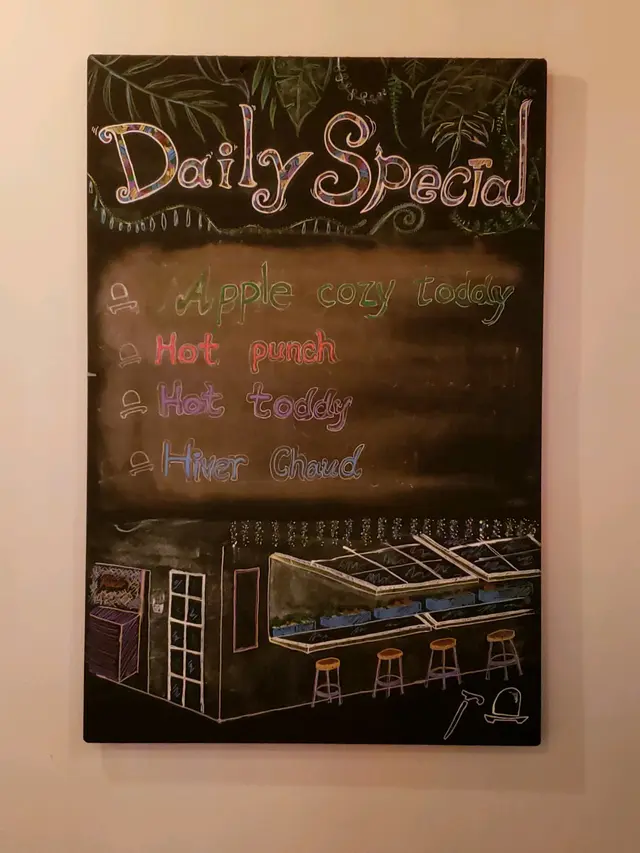 Daily Special
Apple cozy toddy
Hot punch
Hot toddy
Hiver Chaud